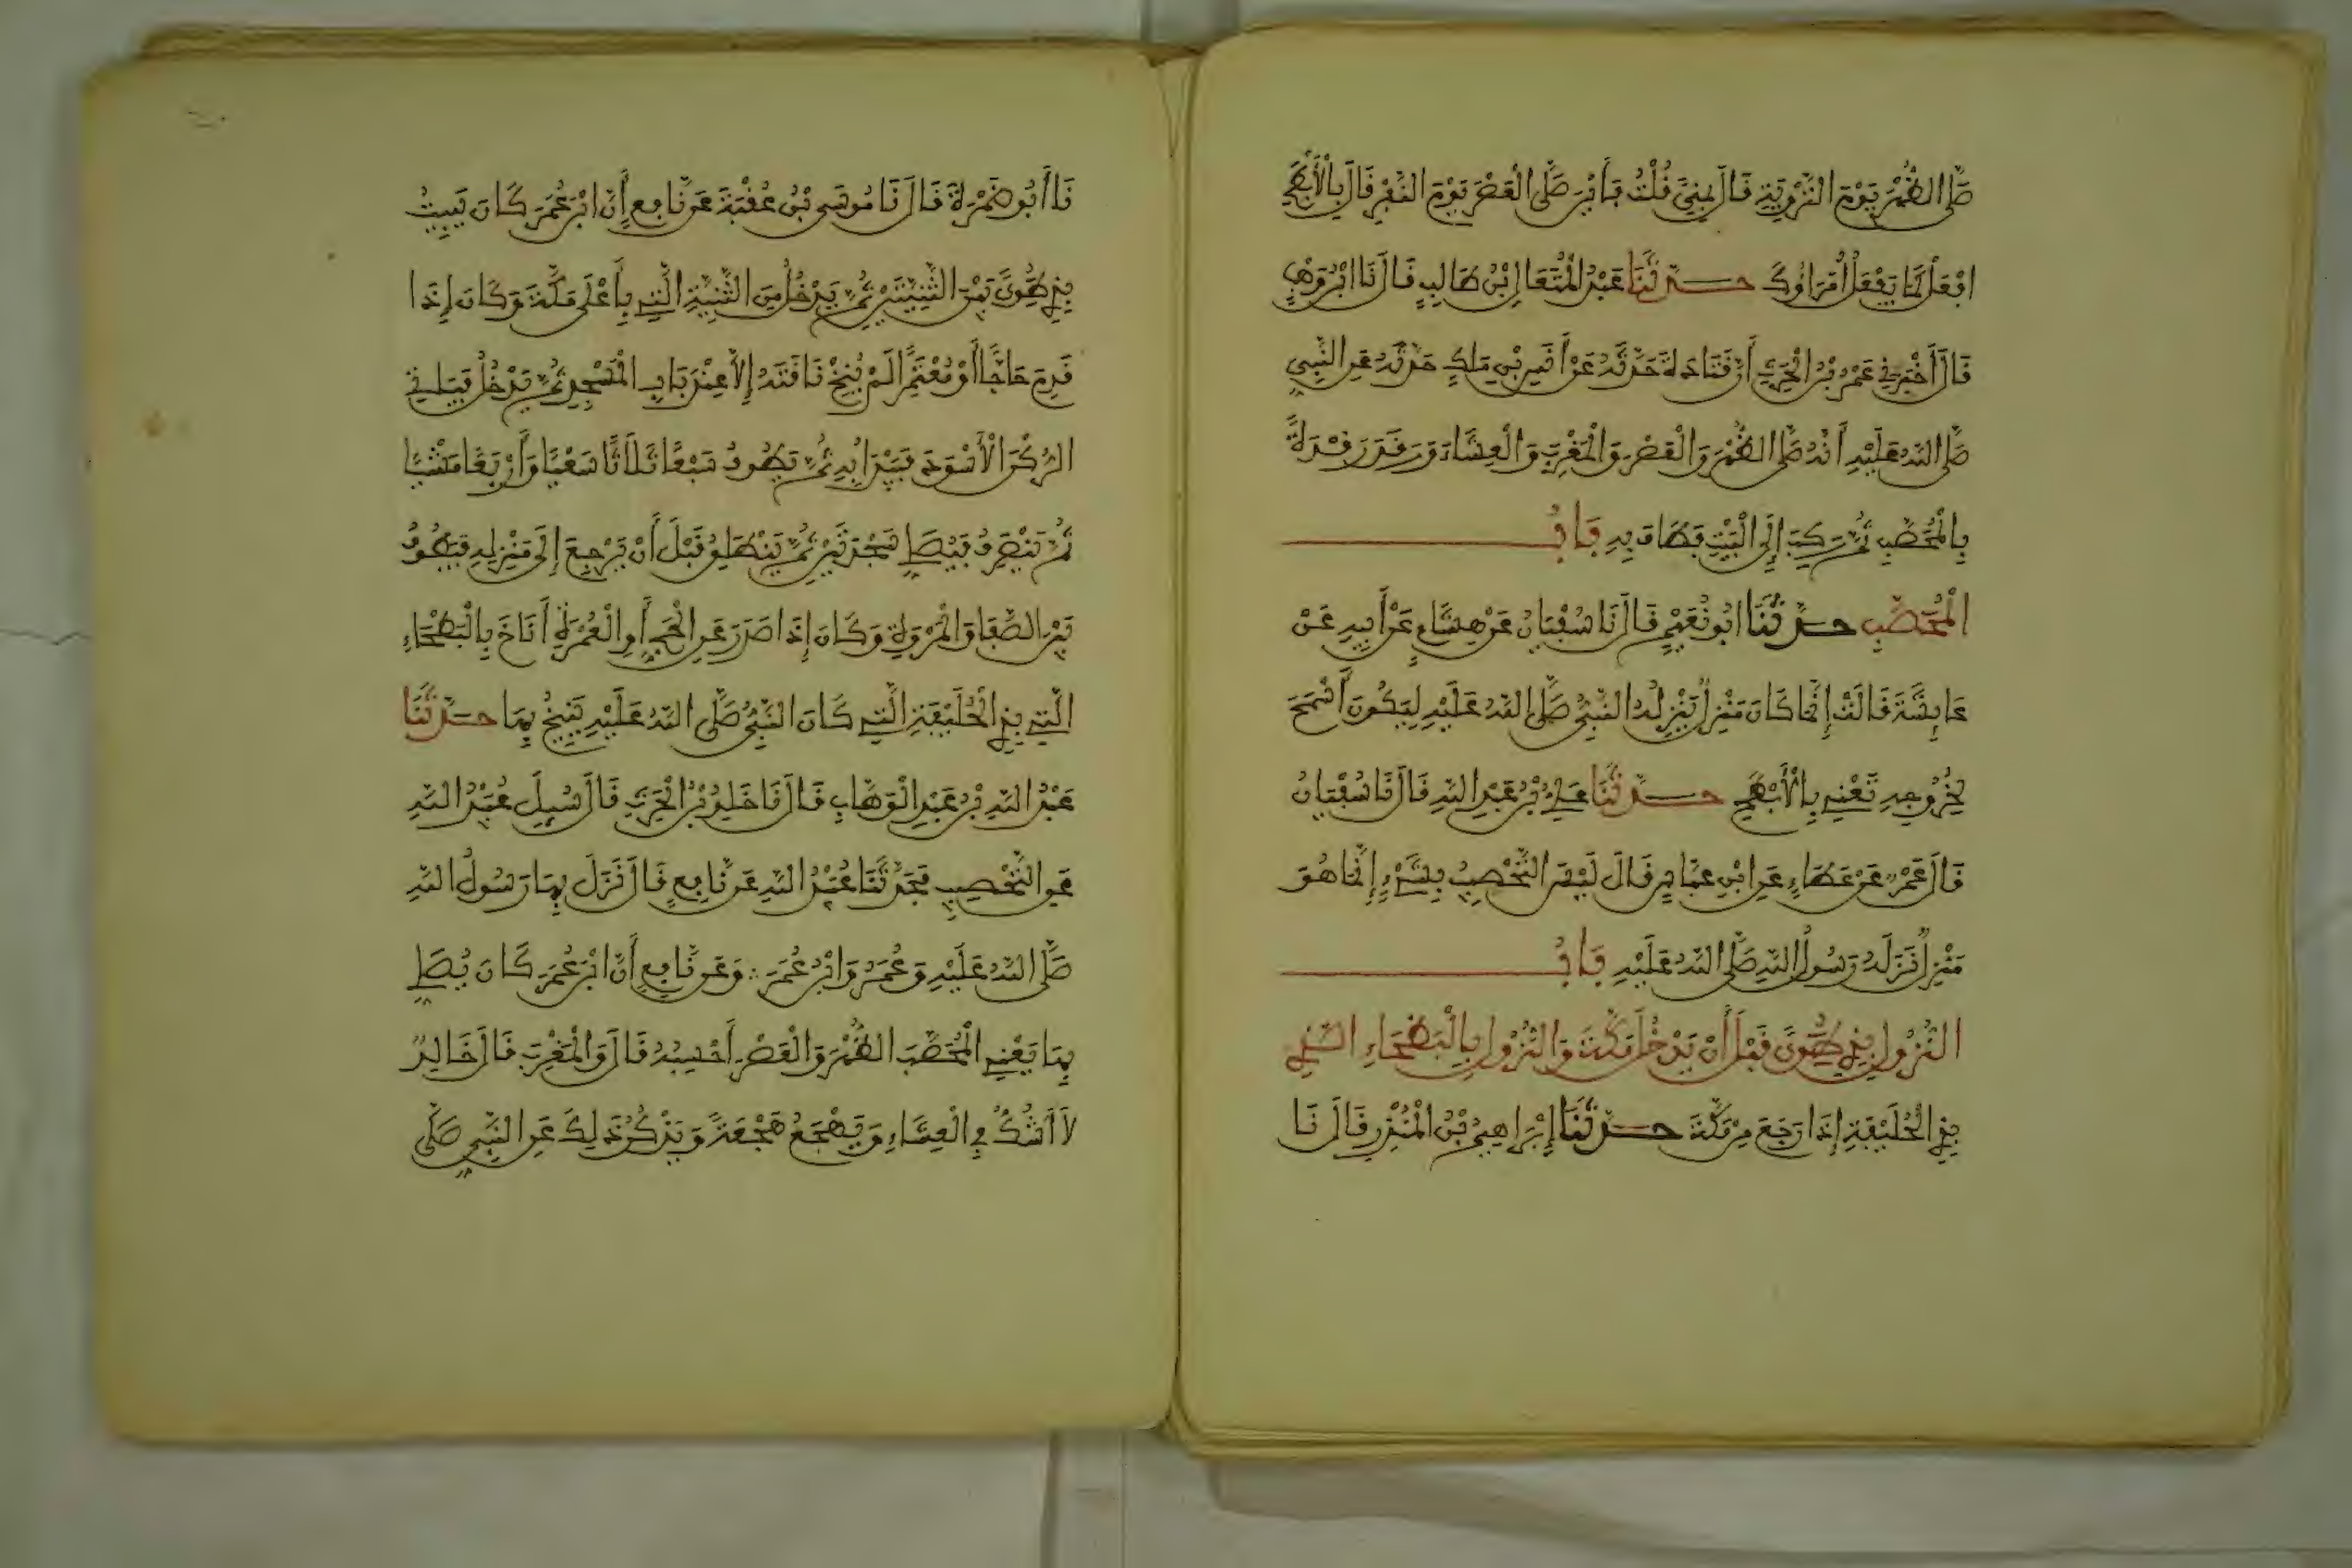 صَلَّى الظُّهْرَ يَوْمَ التَّرْوِيَةِ قَالَ بِمِنًى قُلْتُ فَأَيْنَ صَلَّى الْعَصْرَ يَوْمَ النَّفْرِ قَالَ بِالْأَبْطَحِ
افْعَلْ كَمَا يَفْعَلُ أُمَرَاؤُكَ حَدَّثَنَا عَبْدُ الْمُتَعَالِ بْنُ طَالِبٍ قَالَ نَا ابْنُ وَهْبٍ
قَالَ أَخْبَرَنِي عَمْرُو بْنُ الْحَرِثِ أَنَّ قَتَادَةَ حَدَّثَهُ عَنْ أَنَسِ بْنِ مَلِكٍ حَدَّثَهُ عَنِ النَّبِيِّ
صَلَّى اللَّهُ عَلَيْهِ أَنَّهُ صَلَّى الظُّهْرَ وَالْعَصْرَ وَالْمَغْرِبَ وَالْعِشَاءَ وَرَقَدَ رَقْدَةً
بِالْمُحَصَّبِ ثُمَّ رَكِبَ إِلَى الْبَيْتِ فَطَافَ بِهِ بَابُ
الْمُحَصَّبِ حَدَّثَنَا أَبُو نُعَيْمٍ قَالَ نَا سُفْيَانُ عَنْ هِشَامٍ عَنْ أَبِيهِ عَنْ
عَائِشَةَ قَالَتْ إِنَّمَا كَانَ مَنْزِلٌ يَنْزِلُهُ النَّبِيُّ صَلَّى اللَّهُ عَلَيْهِ لِيَكُونَ أَسْمَحَ
لِخُرُوجِهِ تَعْنِي بِالْأَبْطَحِ حَدَّثَنَا عَلِيُّ بْنُ عَبْدِ اللَّهِ قَالَ نَا سُفْيَانُ
قَالَ عَمْرٌو عَنْ عَطَاءٍ عَنِ ابْنِ عَبَّاسٍ قَالَ لَيْسَ التَّحْصِيبُ بِشَيْءٍ إِنَّمَا هُوَ
مَنْزِلٌ نَزَلَهُ رَسُولُ اللَّهِ صَلَّى اللَّهُ عَلَيْهِ بَابُ
النُّزُولِ بِذِي طُوًى قَبْلَ أَنْ يَدْخُلَ مَكَّةَ وَالنُّزُولِ بِالْبَطْحَاءِ الَّتِي
بِذِي الْحُلَيْفَةِ إِذَا رَجَعَ مِنْ مَكَّةَ حَدَّثَنَا إِبْرَاهِيمُ بْنُ الْمُنْذِرِ قَالَ نَا
نَا أَبُو ضَمْرَةَ قَالَ نَا مُوسَى بْنُ عُقْبَةَ عَنْ نَافِعٍ أَنَّ ابْنَ عُمَرَ كَانَ يَبِيتُ
بِذِي طُوًى بَيْنَ الثَّنِيَّتَيْنِ ثُمَّ يَدْخُلُ مِنَ الثَّنِيَّةِ الَّتِي بِأَعْلَى مَكَّةَ وَكَانَ إِذَا
قَدِمَ حَاجًّا أَوْ مُعْتَمِرًا لَمْ يُنِخْ نَاقَتَهُ إِلَّا عِنْدَ بَابِ الْمَسْجِدِ ثُمَّ يَدْخُلُ فَيَأْتِي
الرُّكْنَ الْأَسْوَدَ فَيَبْدَأُ بِهِ ثُمَّ يَطُوفُ سَبْعًا ثَلَاثًا سَعْيًا وَأَرْبَعًا مَشْيًا
ثُمَّ يَنْصَرِفُ فَيُصَلِّي سَجْدَتَيْنِ ثُمَّ يَنْطَلِقُ قَبْلَ أَنْ يَرْجِعَ إِلَى مَنْزِلِهِ فَيَطُوفُ
بَيْنَ الصَّفَا وَالْمَرْوَةِ وَكَانَ إِذَا صَدَرَ عَنِ الْحَجِّ أَوِ الْعُمْرَةِ أَنَاخَ بِالْبَطْحَاءِ
الَّتِي بِذِي الْحُلَيْفَةِ الَّتِي كَانَ النَّبِيُّ صَلَّى اللَّهُ عَلَيْهِ يُنِيخُ بِهَا حَدَّثَنَا
عَبْدُ اللَّهِ بْنُ عَبْدِ الْوَهَّابِ قَالَ نَا خَلِدُ بْنُ الْحَرِثِ قَالَ سُئِلَ عُبَيْدُ اللَّهِ
عَنِ التَّحْصِيبِ فَحَدَّثَنَا عُبَيْدُ اللَّهِ عَنْ نَافِعٍ قَالَ نَزَلَ بِهَا رَسُولُ اللَّهِ
صَلَّى اللَّهُ عَلَيْهِ وَعُمَرُ وَابْنُ عُمَرَ ∴ وَعَنْ نَافِعٍ أَنَّ ابْنَ عُمَرَ كَانَ يُصَلِّي
بِهَا يَعْنِي الْمُحَصَّبَ الظُّهْرَ وَالْعَصْرَ أَحْسِبُهُ قَالَ وَالْمَغْرِبَ قَالَ خَالِدٌ
لَا أَشُكُّ فِي الْعِشَاءِ وَيَهْجَعُ هَجْعَةً وَيَذْكُرُ ذَلِكَ عَنِ النَّبِيِّ صَلَّى